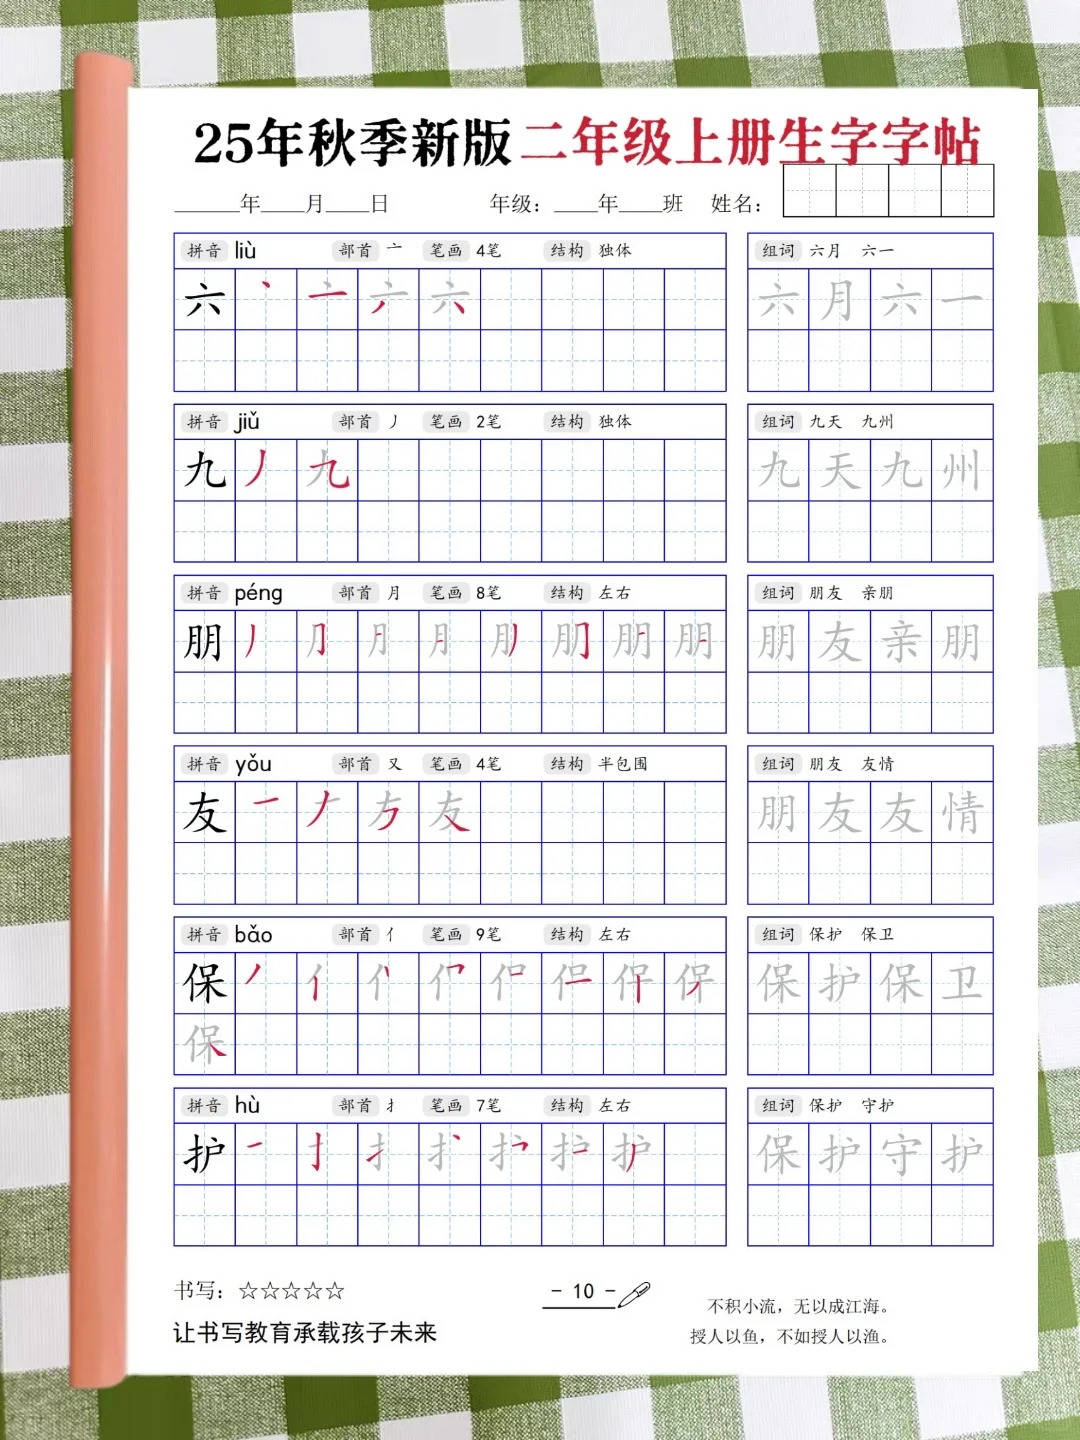 25年秋季新版二年级上册生字字帖
______年____月____日 年级：____年____班 姓名：
拼音 liù 部首 亠 笔画 4笔 结构 独体 组词 六月 六一
六 六 六月六一
拼音 jiǔ 部首 丿 笔画 2笔 结构 独体 组词 九天 九州
九 九 九天九州
拼音 péng 部首 月 笔画 8笔 结构 左右 组词 朋友 亲朋
朋 朋 朋友亲朋
拼音 yǒu 部首 又 笔画 4笔 结构 半包围 组词 朋友 友情
友 友 朋友友情
拼音 bǎo 部首 亻 笔画 9笔 结构 左右 组词 保护 保卫
保 保护保卫
保
拼音 hù 部首 扌 笔画 7笔 结构 左右 组词 保护 守护
护 护 保护守护
书写：☆☆☆☆☆
- 10 -
不积小流，无以成江海。
让书写教育承载孩子未来
授人以鱼，不如授人以渔。